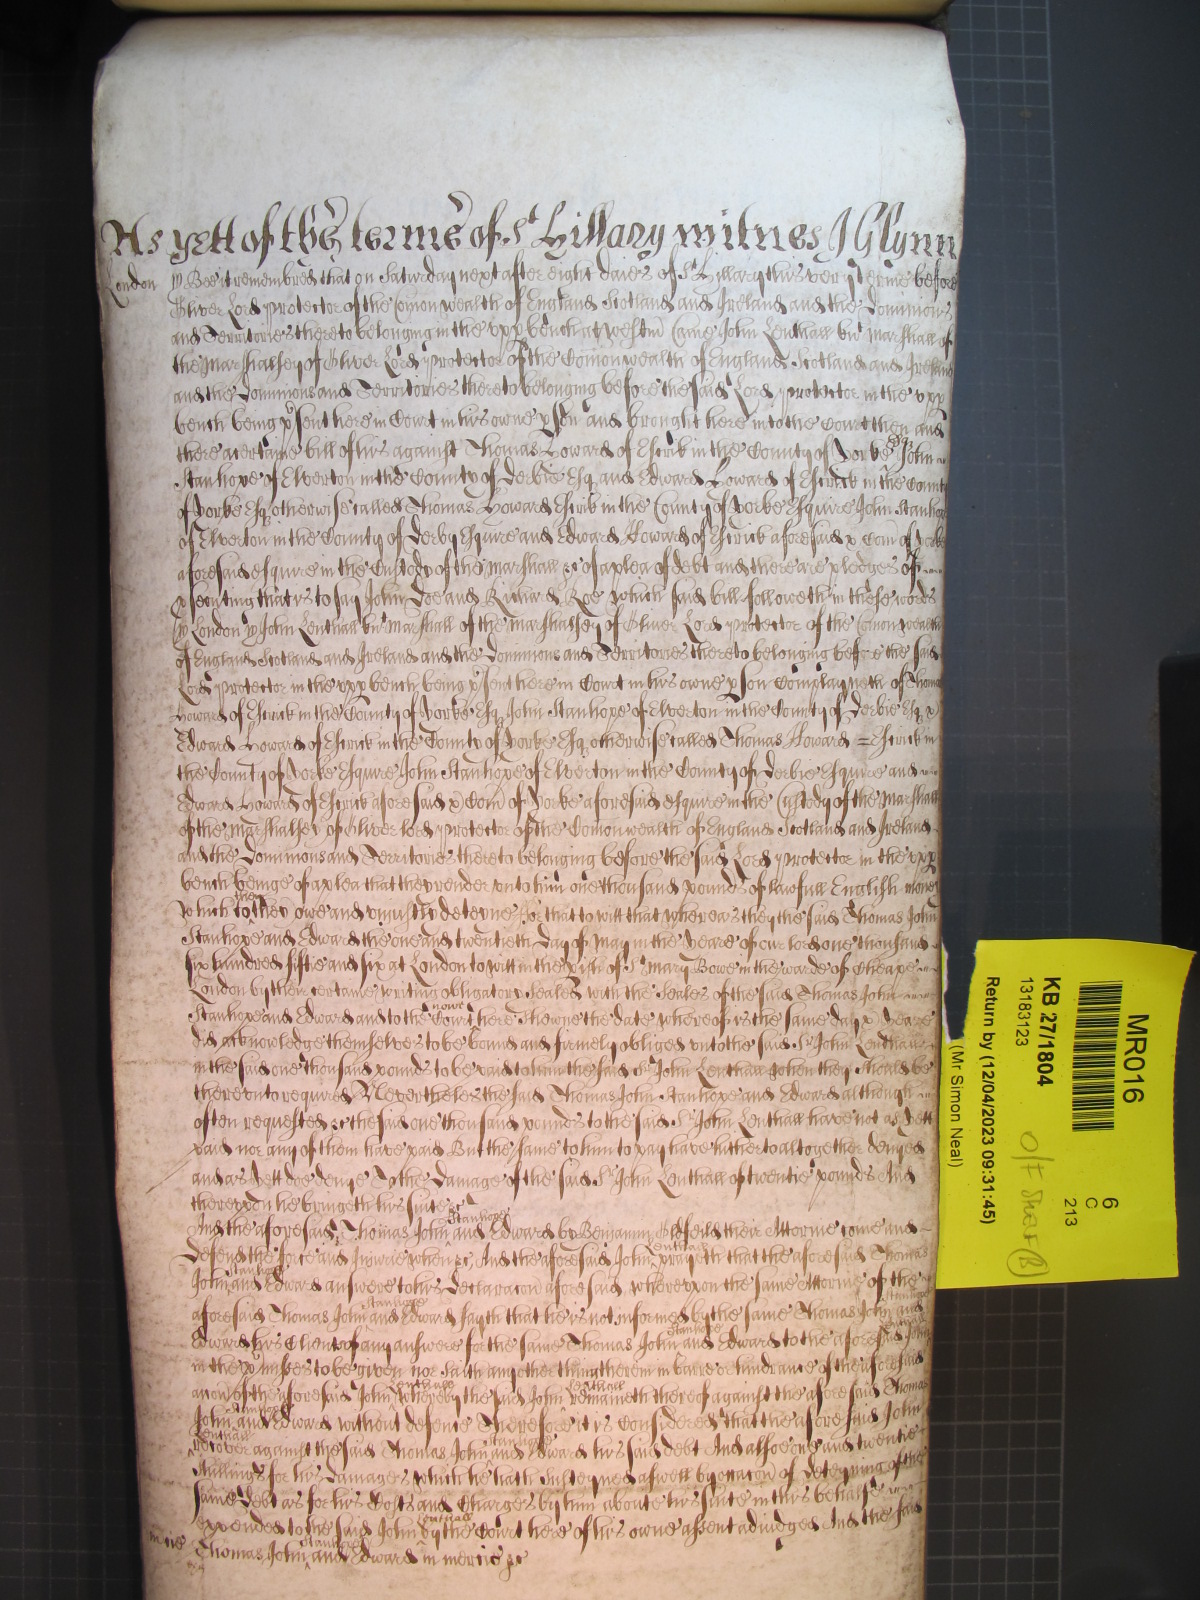 As yett of the terme of St Hillary witnes J Glynn
London
Bee it remembred that on Saturday next after eight daies of St Hillary this very terme before
Oliver Lord protector of the Comonwealth of England Scotland and Ireland and the Dominions
and Territories thereto belonging in the upp bench at westm Came John Lenthall kt Marshall of
the Marshalsey of Oliver Lord protector of the Comonwealth of England Scotland and Ireland
and the Dominions and Territories thereto belonging before the said Lord protector in the upp
bench being psent here in Court in his owne pson and brought here into the Court then and
there a certaine bill of his against Thomas Howard of Escrik in the County of Yorke Esq John
Stanhope of Elverton in the County of Derbie Esq and Edward Howard of Escrick in the County
of Yorke Esq otherwise called Thomas Howard Escrik in the County of Yorke Esquire John Stanhop
of Elverton in the County of Derby Esquire and Edward Howard of Escrick aforesaid Com of Yorke
aforesaid esquire in the Custody of the Marshall &c of a plea of debt and there are pledges of
psecuting that is to say John Doe and Richard Roe which said bill followeth in these words
London John Lenthall kt Marshall of the Marshalsey of Oliver Lord protector of the Comonwealth
of England Scotland and Ireland and the Dominions and Territories thereto belonging before the said
Lord protector in the upp bench being psent here in Court in his owne pson Complayneth of Thomas
Howard of Escrick in the County of Yorke Esq John Stanhope of Elverton in the County of Derbie Esq
Edward Howard of Escrick in the County of Yorke Esq otherwise called Thomas Howard = Escrick in
the County of Yorke Esquire John Stanhope of Elverton in the County of Derbie Esquire and
Edward Howard of Escrick aforesaid Com of Yorke aforesaid esquire in the Custody of the Marshall
of the Marshalsey of Oliver lord protector of the Comonwealth of England Scotland and Ireland
and the Dominions and Territories thereto belonging before the said Lord protector in the upp
bench beinge of a plea that they render unto him one thousand pounds of lawfull English money
which to him they owe and uniustly deteyne For that to witt that whereas they the said Thomas John
Stanhope and Edward the one and twentieth day of May in the yeare of our lord one thousand
six hundred fiftie and six at London to witt in the pish of St Mary Bowe in the warde of Cheape
London by their certaine writing obligatory Sealed with the Seales of the said Thomas John
Stanhope and Edward and to the Court nowe here Showne the date whereof is the same day yeare
did acknowledge themselves to be bound and firmely obliged unto the said Sr John Lenthall
in the said one thousand pounds to be paid to him the said Sr John Lenthall when they should be
thereunto required Neverthelesse the said Thomas John Stanhope and Edward although
often requested &c the said one thousand pounds to the said Sr John Lenthall have not as yett
paid nor any of them have paid But the same to him to pay have hitherto altogether denyed
and as yett doe denye To the Damage of the said Sr John Lenthall of twentie pounds And
thereupon he bringeth his suite &c
And the aforesaid Thomas John Stanhope and Edward by Benjamin their Attorne come and
Defend the force and Iniurie when &c And the aforesaid John Lenthall prayeth that the aforesaid Thomas
John Stanhope and Edward answere to his declaracon aforesaid whereupon the same Attorne of the
aforesaid Thomas John Stanhope and Edward sayth that he is not informed by the same Thomas John Stanhope and
Edward his Clients of any answere for the same Thomas John Stanhope and Edward to the aforesaid John Lenthall
in the pmisses to be given nor saith any other thing therein in barre or hindrance of the aforesaid
accon of the aforesaid John Lenthall whereby the said John Lenthall remaineth thereof against the aforesaid Thomas
John Stanhope and Edward without defence Therefore it is Considered that the aforesaid John
Lenthall recover against the said Thomas John Stanhope and Edward his said debt And alsoe one and twentie
shillings for his damages which he hath susteyned aswell by occacon of deteyning of the
same debt as for his Costs and Charges by him about his suite in this behalfe
expended to the said John Lenthall by the Court here of his owne assent adiudged And the said
Thomas John Stanhope and Edward in mercie &c
MR016
6
C
213
KB 27/1804
13183123
Return by (12/04/2023 09:31:45)
(Mr Simon Neal)